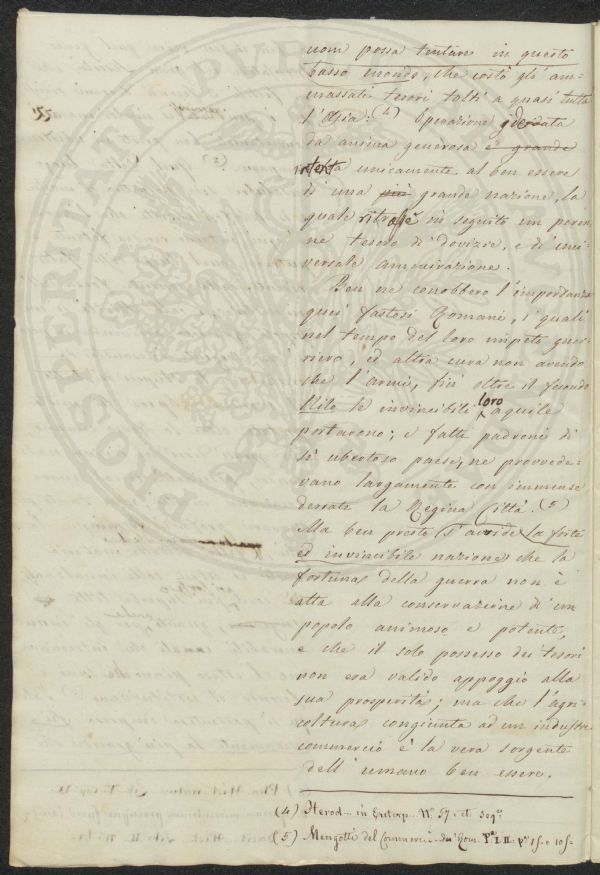 uom possa tentare in questo
basso mondo, che costò gli am-
massati tesori tolti a quasi tutta
l'Asia. (4) Operazione guidata
da anima generosa e grande
intenta unicamente al ben essere
di una più grande nazione, la
quale ritrasse in seguito un peren-
ne tesoro di dovizie, e di uni-
versale ammirazione.
Ben ne conobbero l'importanza
quei fastosi Romani, i quali
nel tempo del loro impeto guer-
riero, ed altra cura non avendo
che l'armi, fin oltre il fecondo
Nilo le invincibili loro aquile
portarono; e fatti padroni di
sì ubertoso paese, ne provvede-
vano largamente con immense
derrate la Regina Città. (5)
Ma ben presto s'avvide la forte
ed invincibile nazione che la
fortuna della guerra non è
atta alla conservazione di un
popolo animoso e potente,
e che il solo possesso dei tesori
non era valido appoggio alla
sua prosperità; ma che l'agri-
coltura congiunta ad un industre
commercio è la vera sorgente
dell'umano ben essere.
(4) Herod. in Euterp. N° 57 et seq.
(5) Mengotti del Commerc. dei Rom.